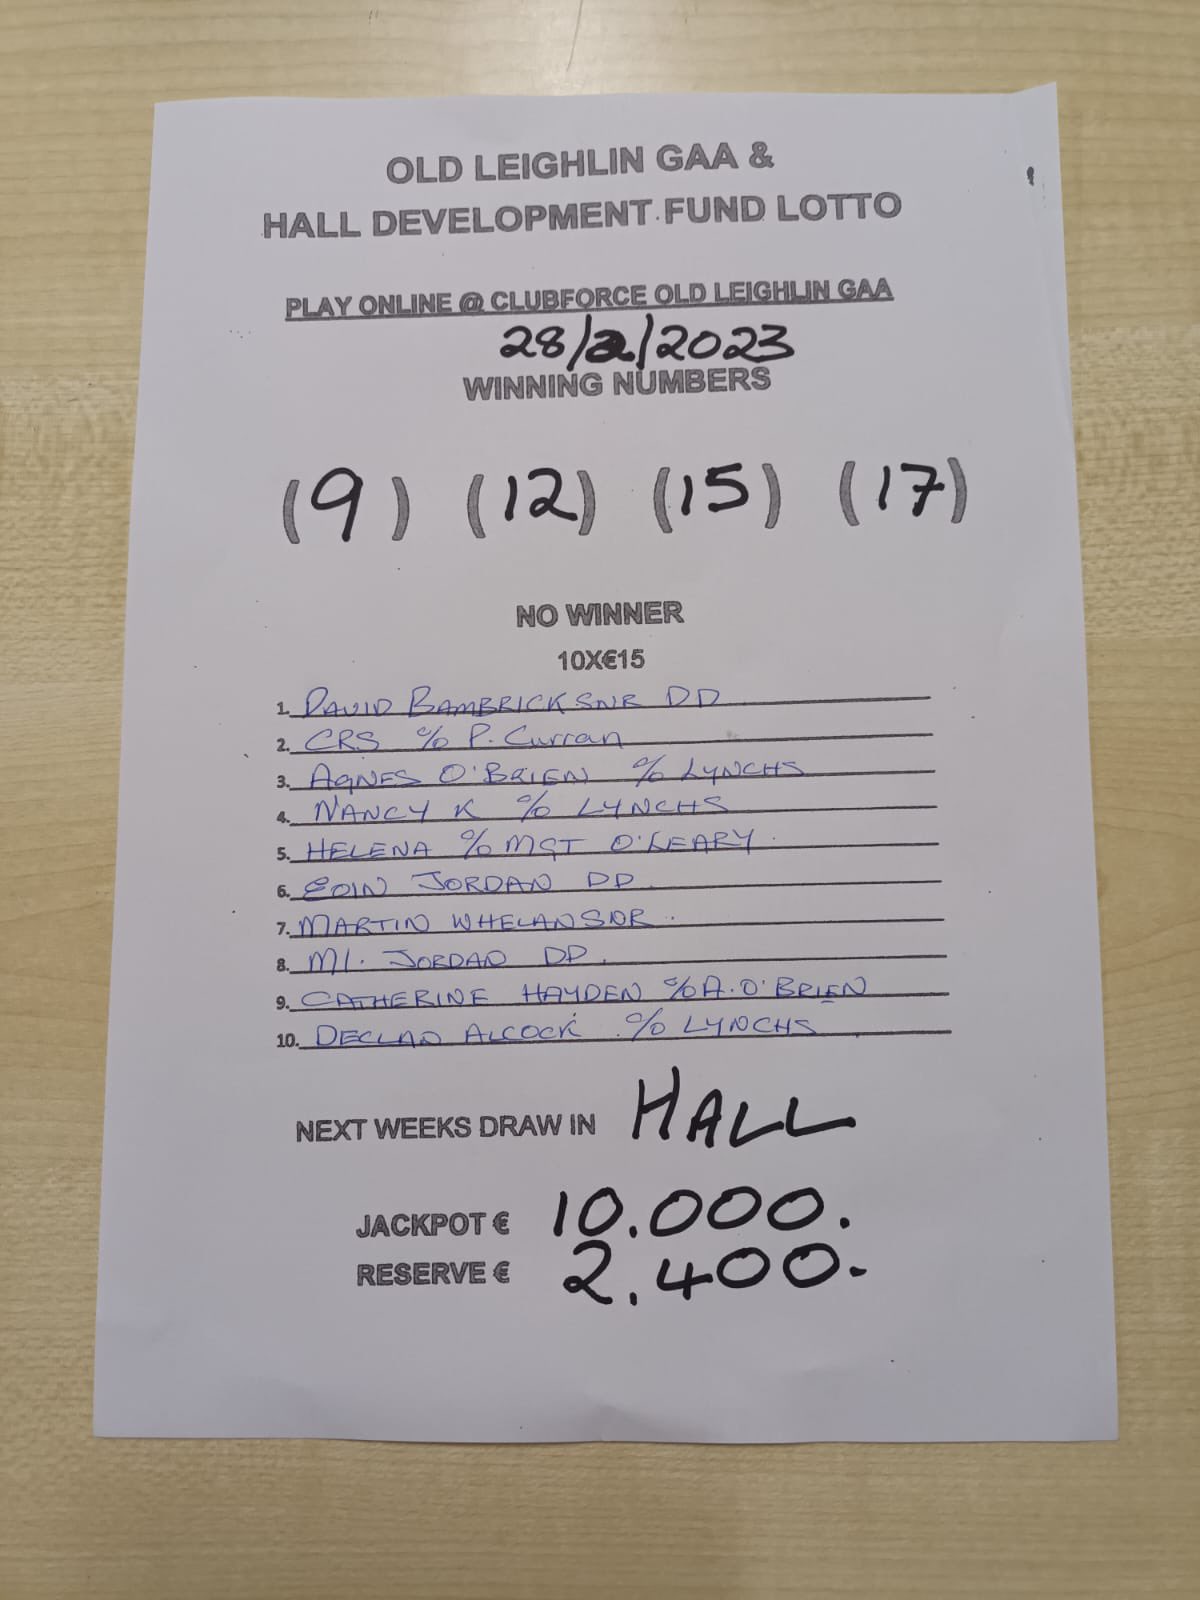 OLD LEIGHLIN GAA &
HALL DEVELOPMENT FUND LOTTO
PLAY ONLINE @ CLUBFORCE OLD LEIGHLIN GAA
28/2/2023
WINNING NUMBERS
(9) (12) (15) (17)
NO WINNER
10X€15
1. DAVID BAMBRICK SNR DD
2. CRS % P. Curran
3. AGNES O'BRIEN % LYNCHS
4. NANCY K % LYNCHS
5. HELENA % MGT O'LEARY.
6. EOIN JORDAN DD.
7. MARTIN WHELAN SNR.
8. MI. JORDAN DD.
9. CATHERINE HAYDEN % A. O'BRIEN
10. DECLAN ALCOCK % LYNCHS
NEXT WEEKS DRAW IN HALL
JACKPOT € 10.000.
RESERVE € 2.400.